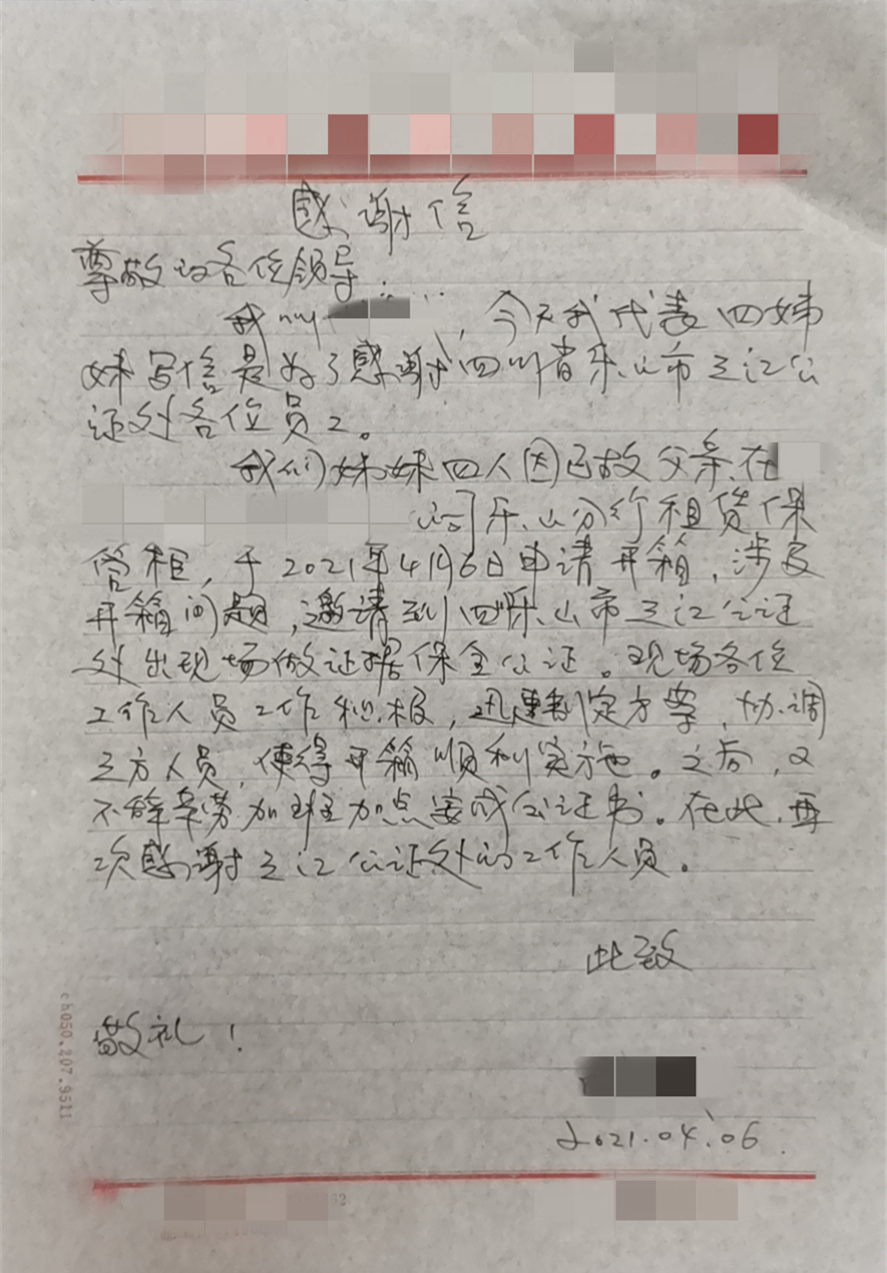 感谢信
尊敬的各位领导:
我叫，今天我代表四姊
妹写信是为了感谢四川省乐山市三江公
证处各位员工。
我们姊妹四人因已故父亲在
公司乐山分行租赁保
管柜，于2021年4月6日申请开箱，涉及
开箱问题，邀请到四川乐山市三江公证
处出现场做证据保全公证。现场各位
工作人员工作积极，迅速制定方案，协调
三方人员，使得开箱顺利实施。之后，又
不辞辛劳加班加点完成公证书。在此，再
次感谢三江公证处的工作人员。
此致
敬礼！
2021.04.06
ch050.207.9511